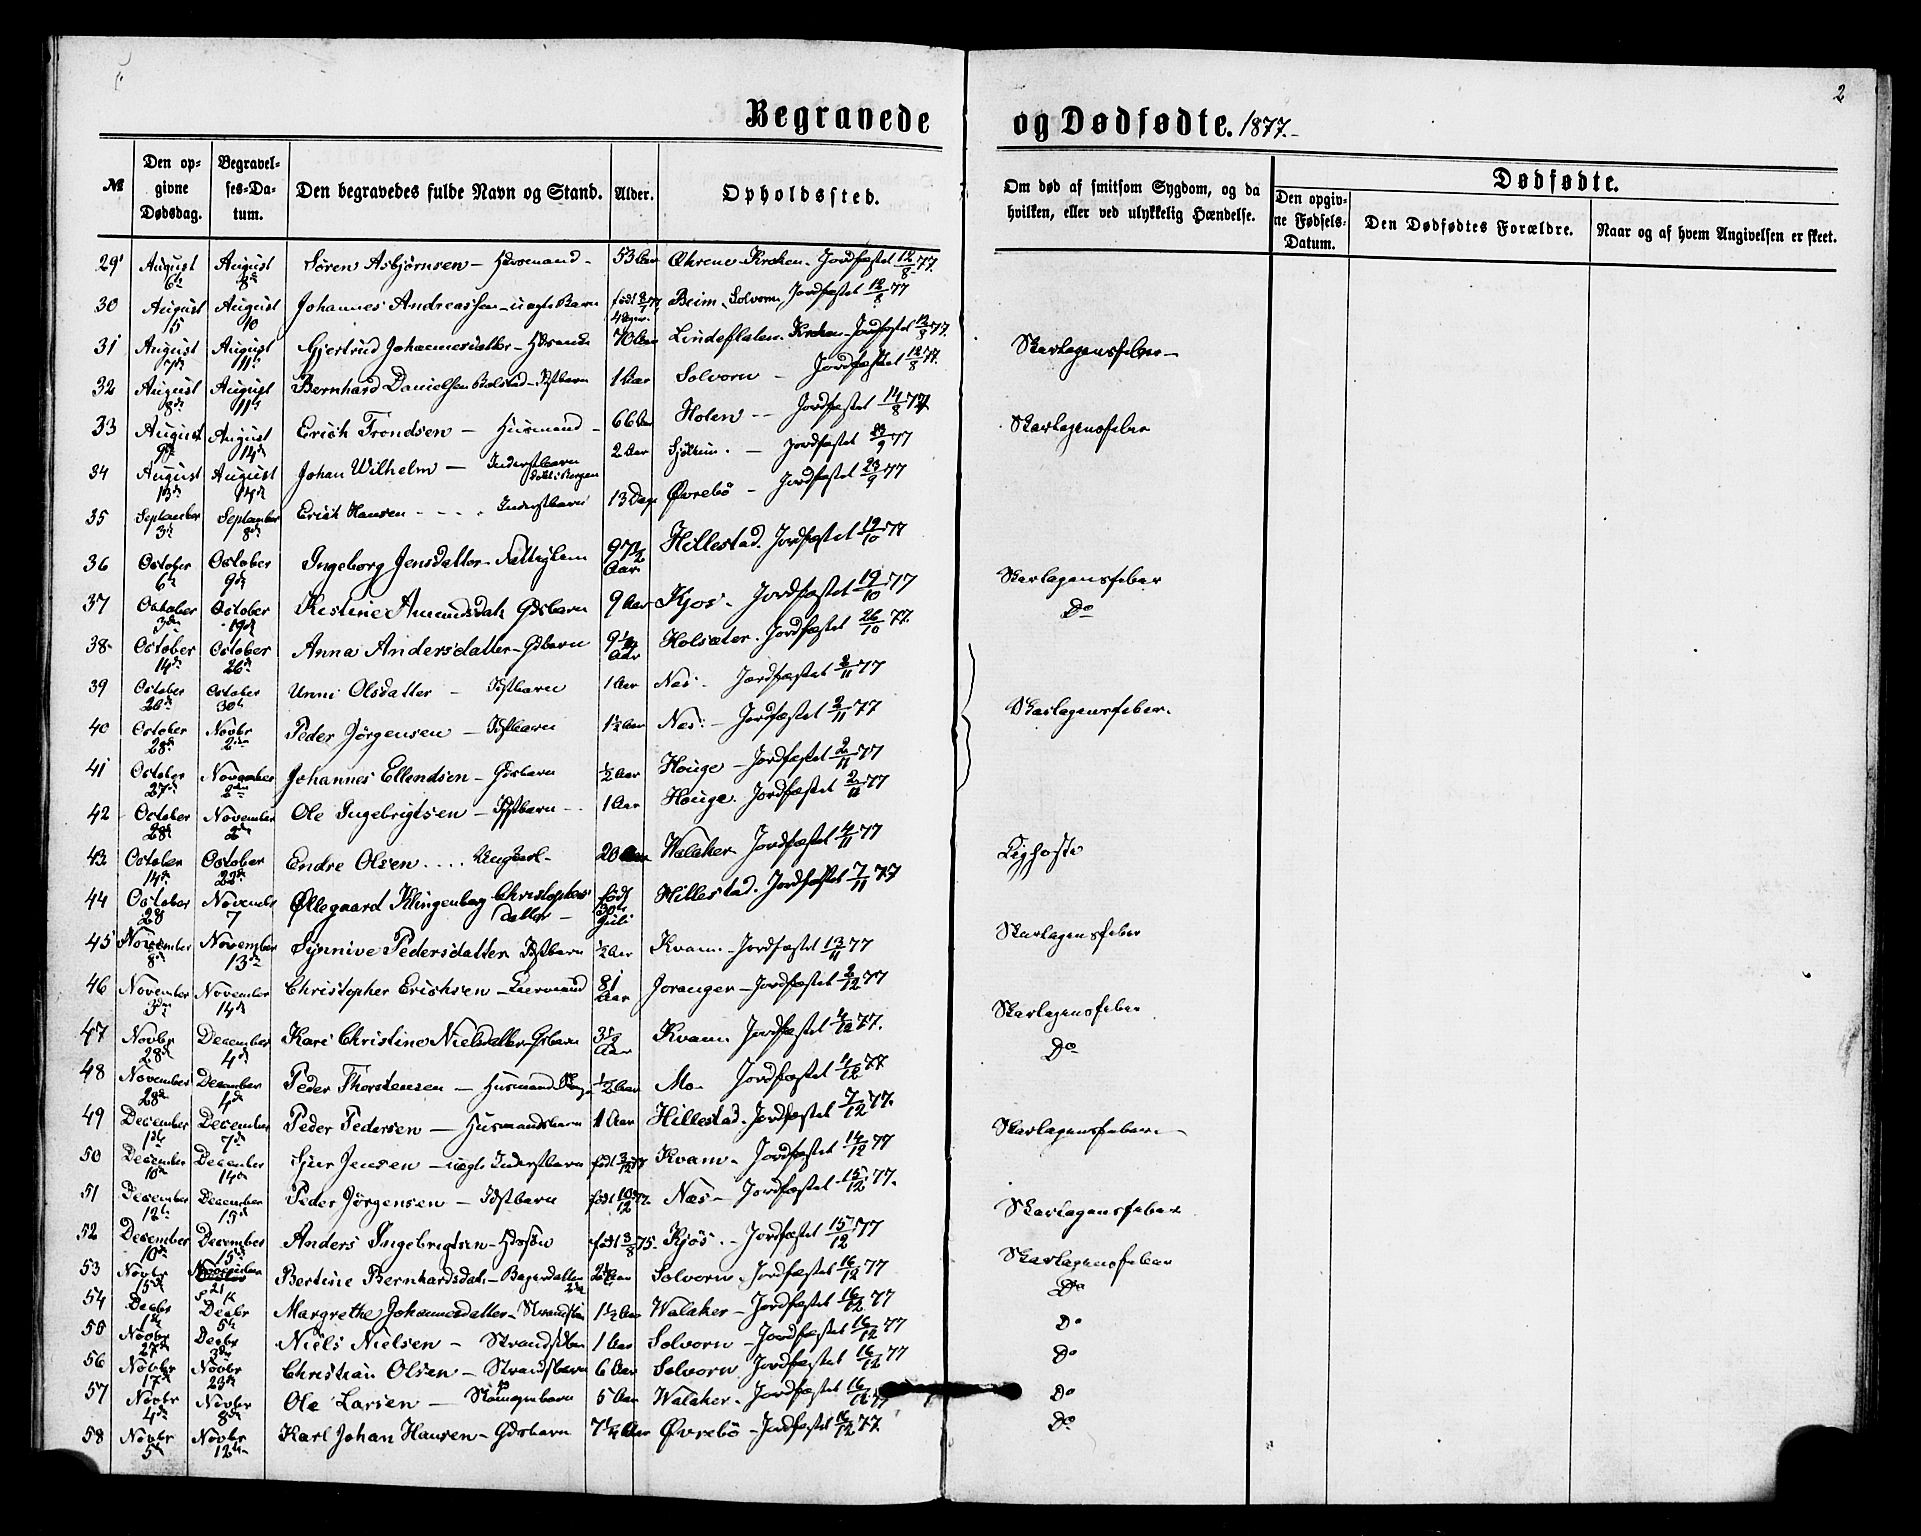 2
Begravede og Dødfødte. 1877.
№ Den opgivne Dødsdag. Begravelses-Datum. Den begravedes fulde Navn og Stand. Alder. Opholdssted. Om død af smitsom Sygdom, og da hvilken, eller ved ulykkelig Hændelse. Dødfødte.
Den opgivne Fødsels-Datum. Den Dødfødtes Forældre. Naar og af hvem Angivelsen er skeet.
29 August 6te August 8de Søren Asbjørnsen – 53 Aar Kroken. Jordfæstet 12/8 77.
30 August 5 August 10 Johannes Andreassen – uægte Barn født Beim. Solvorn. Jordfæstet 12/8 77
31 August August 11te Gjertrud Johannesdatter – 70 Aar Lindeflaten. Kroken – Jordfæstet 12/8 77. Skarlagensfeber –
32 August 8de August 11te Bernhard Danielsen Bolstad – 1 Aar Solvorn – Jordfæstet 12/8 77.
33 August 9de August 14de Erich Trondsen – Husmand – 66 Aar Holen – Jordfæstet 14/8 77 Skarlagensfeber
34 August 13de August Johan Wilhelm – Inderstbarn 2 Aar – Jordfæstet 23/9 77
35 September 3die September 8de Erich Hansen – Inderstbarn 13 Dage Øvrebö – Jordfæstet 23/9 77
36 October 6te October 9de Ingeborg Jensdatter – Fattiglem 97 1/2 Aar Hillestad. Jordfæstet 19/10 77 Skarlagensfeber
37 October 3die October 19de Kestine Amundsdatr Gdsbarn 9 Aar Kjos – Jordfæstet 19/10 77 Do
38 October 14de October 26de Anna Andersdatter – Gdbarn 9 1/4 Aar Holsæter. Jordfæstet 26/10 77.
39 October 26de October 30te Unni Olsdatter – 1 Aar Næs – Jordfæstet 2/11 77
40 October 28de Novbr 2den Peder Jørgensen – 1 1/2 Aar Næs – Jordfæstet 2/11 77 Skarlagensfeber.
41 October 27de November 2den Johannes Ellendsen – Gdsbarn 1/2 Aar Houge – Jordfæstet 2/11 77
42 October 28de November 2den Ole Ingebrigtsen – 1 Aar Houge. Jordfæstet 2/11 77
43 October 14de October 22de Endre Olsen .... Ungkarl – 20 Aar Walaker. Jordfæstet 4/11 77
44 October 28 November 7 Øllegaard Klingenberg Christophersdatter – født 30te Juli Hillestad. Jordfæstet 7/11 77
45 November 8de November 13de Synnive Pedersdatter 1/2 Aar Kvam – Jordfæstet 13/11 77 Skarlagensfeber
46 November 3die November 14de Christopher Erichsen – 81 Aar Joranger – Jordfæstet 2/12 77
47 Novbr 28de December 4de Kari Christine Nielsdatter – Gdsbarn Aar Kvam Jordfæstet 4/12 77. Do
48 November 28de December 4de Peder Thorstensen – Husmands 1/2 Aar Mo – Jordfæstet 4/12 77
49 December 1ste December 7de Peder Pedersen – Husmandsbarn 1 Aar Hillestad. Jordfæstet 7/12 77. Skarlagensfeber
50 December 10de December 14de Sjur Jensen – uægte Inderstbarn født 3/12 77 Kvam – Jordfæstet 14/12 77
51 December 12te December 15de Peder Jørgensen – født 10/12 77. Næs – Jordfæstet 15/12 77.
52 December 10de December 15de Anders Ingebrigtsen – født 3/8 75. Kjös – Jordfæstet 15/12 77 Skarlagensfeber
53 Novbr 15de November 21 Bertine Bernhardsdatr – 2 1/4 Aar Solvorn. Jordfæstet 16/12 77 Do
54 Decbr 1ste Decbr 5te Margrethe Johannesdatter – 1 1/2 Aar Walaker – Jordfæstet 16/12 77 Do
55 Novbr 27de Decbr 3die Niels Nielsen – Strandsbarn 1 Aar Solvorn – Jordfæstet 16/12 77 Do
56 Novbr 17de Novbr 23de Christian Olsen – Strandsbarn 6 Aar Solvorn Jordfæstet 16/12 77
57 Novbr 4de Novbr 8de Ole Larsen – 5 Aar Walaker. Jordfæstet 16/12 77 Do
58 Novbr 5te Novbr 12te Karl Johan Hansen – Gdsbarn 7 1/4 Aar Øvrebö – Jordfæstet 16/12 77. Do